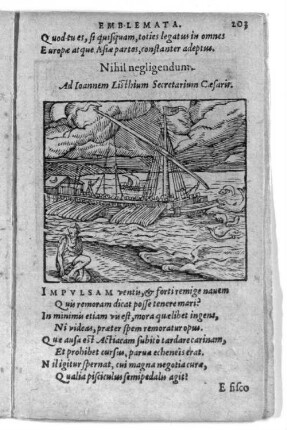 EMBLEMATA. 203
Quod tu es, si quisquam, toties legatus in omnes
Europæ atque Asiæ partes, constanter adeptus.
Nihil negligendum.
Ad Ioannem Listhium Secretarium Cæsaris.
IMPVLSAM ventis, & forti remige nauem
Quis remoram dicat posse tenere mari?
In minimis etiam vis est, mora quælibet ingens,
Ni videas, præter spem remoratur opus.
Quæ ausa est Actiacam subitò tardare carinam,
Et prohibet cursus, parua echeneis erat.
Nil igitur spernat, cui magna negotia curæ,
Qualia pisciculus semipedalis agit?
E fisco